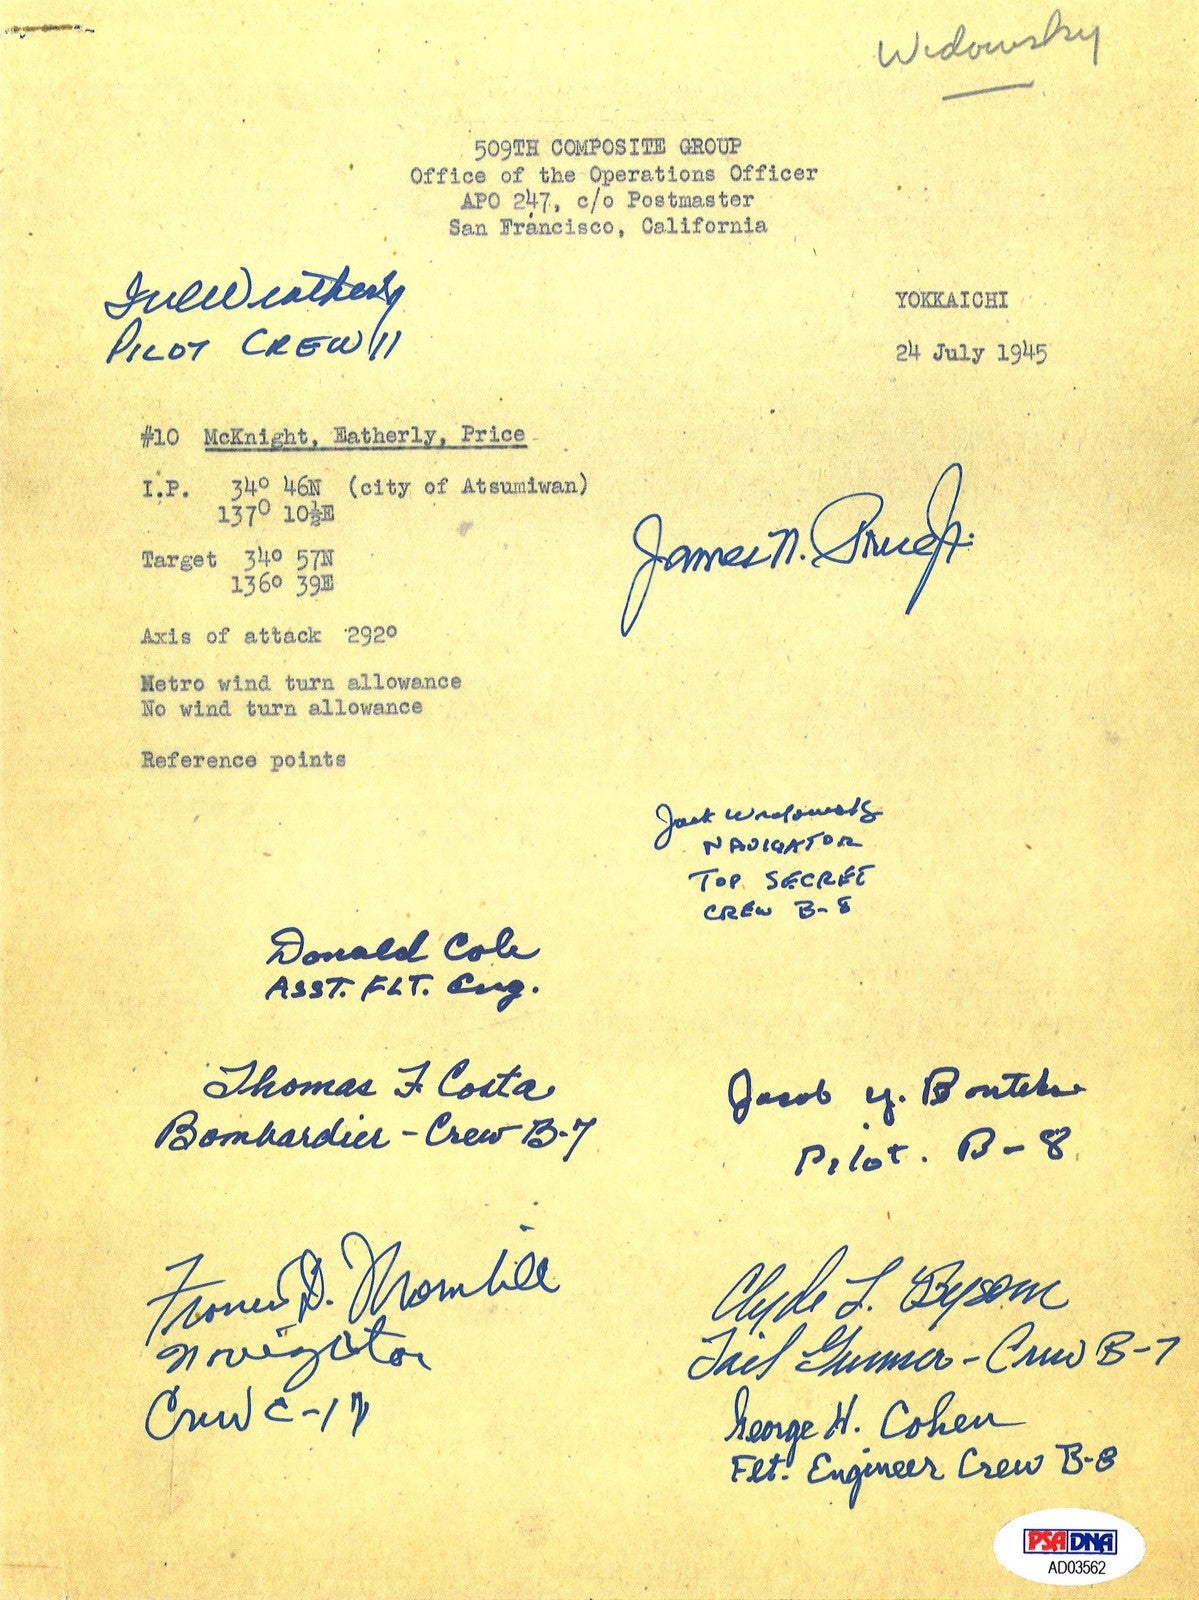 Widowsky
509TH COMPOSITE GROUP
Office of the Operations Officer
APO 247, c/o Postmaster
San Francisco, California
YOKKAICHI
24 July 1945
Weatherly
PILOT CREW 11
#10 McKnight, Eatherly, Price
I.P. 34° 46N (city of Atsumiwan)
137° 10½E
Target 34° 57N
136° 39E
Axis of attack 292°
Metro wind turn allowance
No wind turn allowance
Reference points
James N. Price Jr.
Jack Widowsky
NAVIGATOR
TOP SECRET
CREW B-8
Donald Cole
ASST. FLT. Eng.
Thomas F. Costa
Bombardier - Crew B-7
Jacob Y. Bontekoe
Pilot. B-8
Francis D. Thornhill
Navigator
Crew C-12
Clyde L. Bysom
Tail Gunner - Crew B-7
George H. Cohen
Flt. Engineer Crew B-8
PSA DNA
AD03562